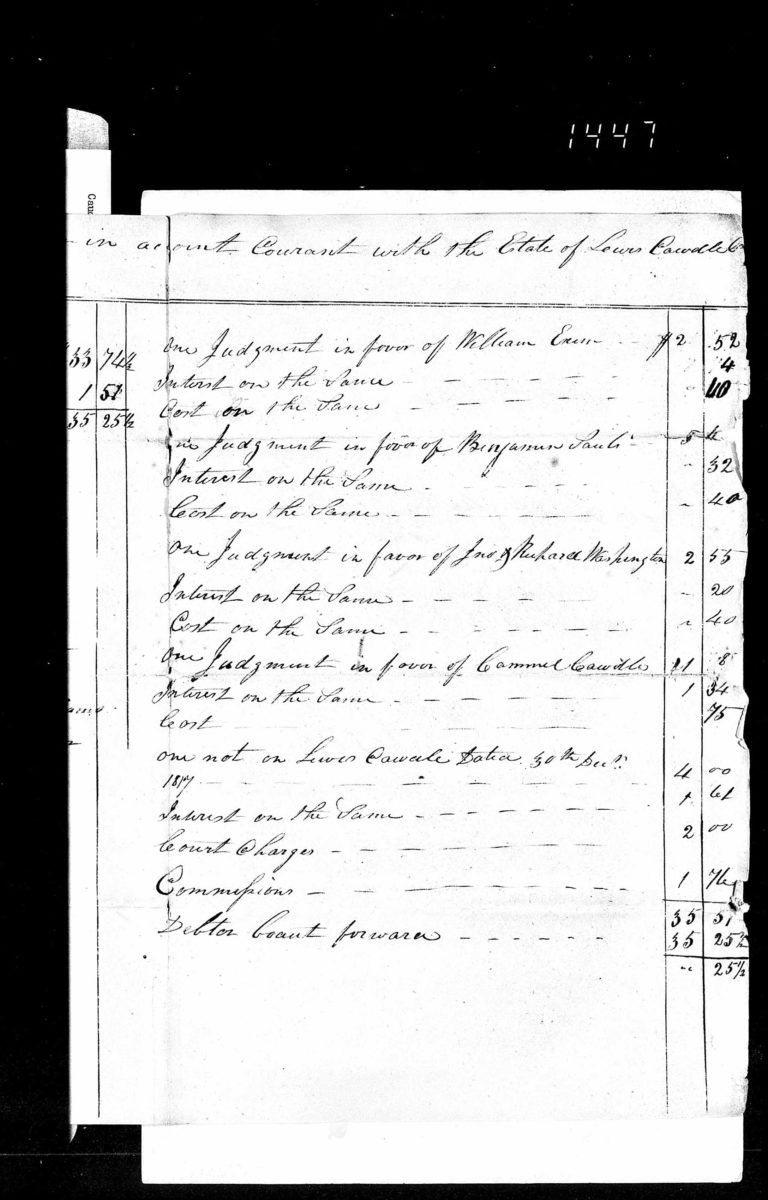 1447
Cau
in account Courant with the Estate of Lewis Cawdle
33 74½
1 51
35 25½
One Judgment in favor of William Exum $2 52
Interst on the Same 4
Cost on the Same 40
One Judgment in favor of Benjamin 5 4
Interest on the Same 32
Cost on the Same 40
One Judgment in favor of Jno & Richard Washington 2 55
Interest on the Same 20
Cost on the Same 40
One Judgment in favor of Cammel Cawdle 11 8
Interest on the Same 1 34
Cost 75
one not on Lewis Cawdle Dated 30th Decr 4 00
1817
Interest on the Same 1 61
Court Charges 2 00
Commissions 1 76
35 51
Debtor Coaut forward 35 25½
" 25½